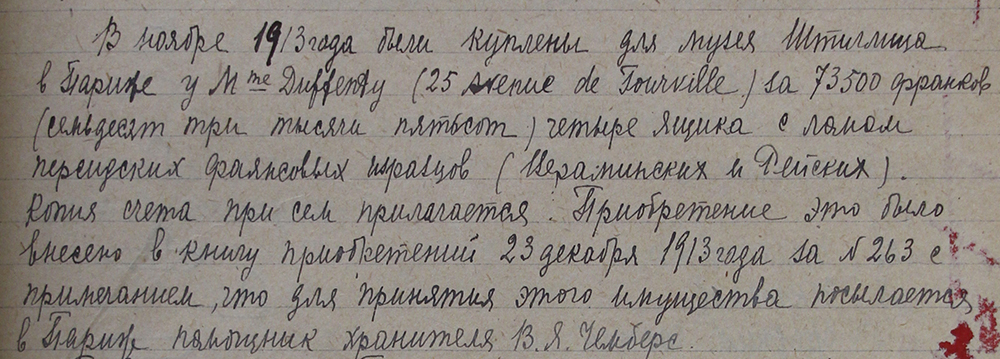 В ноябре 1913 года были куплены для музея Штиглица
в Париже у Mme Duffenty (25 Avenue de Tourville) за 73500 франков
(семьдесят три тысячи пятьсот) четыре ящика с ломом
персидских фаянсовых изразцов (Вераминских и Рейских).
Копия счета при сем прилагается. Приобретение это было
внесено в книгу приобретений 23 декабря 1913 года за N 263 с
примечанием, что для принятия этого имущества посылается
в Париж помощник хранителя В. Я. Чемберс.